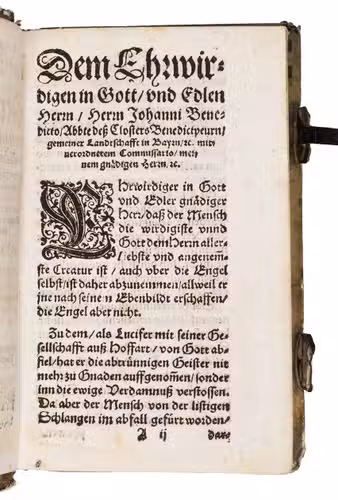 Dem Ehrwir-
digen in Gott / vnd Edlen
Herrn / Herrn Johanni Bene-
dicto / Abbte deß Closters Benedictpeurn /
gemeiner Landtschafft in Bayrn / ꝛc. mit
verordnetem Commissario / mei-
nem gnädigen Herrn. ꝛc.
EHrwirdiger in Gott
vnd Edler gnädiger
Herr / daß der Mensch
die wirdigiste vnnd
Gott dem Herrn aller-
liebste vnd angenem̃-
ste Creatur ist / auch vber die Engel
selbst / ist daher abzunemmen / allweil er
jne nach seinen Ebenbildt erschaffen /
die Engel aber nicht.
Zu dem / als Lucifer mit seiner Ge-
sellschafft auß Hoffart / von Gott ab-
fiel / hat er die abtrünnigen Geister nit
mehr zu Gnaden auffgenom̃en / sonder
inn die ewige Verdamnuß verstossen.
Da aber der Mensch von der listigen
Schlangen im abfall gefürt worden /
A ij